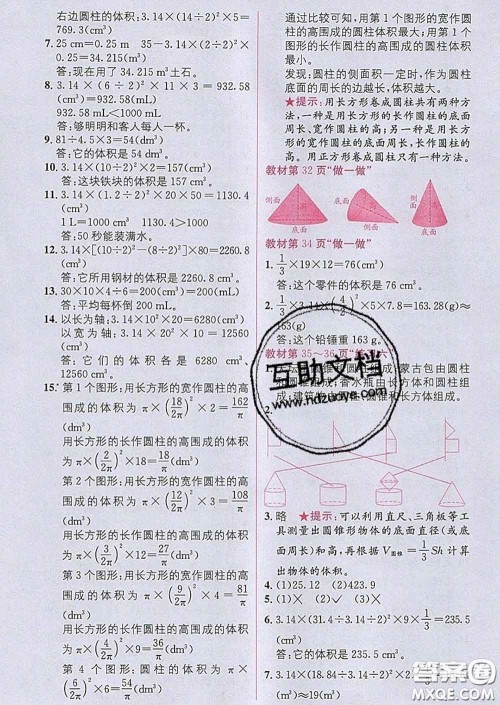 右边圆柱的体积:3.14×(14÷2)²×5=
769.3(cm³)
7. 25 cm=0.25 m　35-3.14×(2÷2)²
×0.25=34.215(m³)
答:现在用了 34.215 m³土石。
8. 3.14×(6÷2)²×11×3=932.58
(cm³)　932.58(cm³)=932.58(mL)
932.58 mL<1000 mL
答:够明明和客人每人一杯。
9. 81÷4.5×3=54(dm³)
答:它的体积是 54 dm³。
10. 3.14×(10÷2)²×2=157(cm³)
答:这块铁块的体积是 157 cm³。
11. 3.14×(1.2÷2)²×20×50=1130.4
(cm³)
1 L=1000 cm³　1000<1130.4
答:50 秒能装满水。
12. 3.14×[(10÷2)²-(8÷2)²]×80=2260.8
(cm³)
答:它所用钢材的体积是 2260.8 cm³。
13. 30×10×4÷2÷3=200(mL)
答:平均每杯倒 200 mL。
14. 以长为轴:3.14×10²×20=6280(cm³)
以宽为轴:3.14×20²×10=12560
(cm³)
答:它们的体积各是 6280 cm³、12560
cm³。
15.* 第 1 个图形:用长方形的宽作圆柱的高
围成的体积为 π×(18/2π)²×2=162/π(dm³)
用长方形的长作圆柱的高围成的体积
为 π×(2/2π)²×18=18/π(dm³)
第 2 个图形:用长方形的宽作圆柱的高
围成的体积为 π×(12/2π)²×3=108/π
(dm³)
用长方形的长作圆柱的高围成的体积
为 π×(3/2π)²×12=27/π(dm³)
第 3 个图形:用长方形的宽作圆柱的高
围成的体积为 π×(9/2π)²×4=81/π
(dm³)
用长方形的长作圆柱的高围成的体积
为 π×(4/2π)²×9=36/π(dm³)
第 4 个图形:圆柱的体积为 π×
(6/2π)²×6=54/π(dm³)
通过比较可知,用第 1 个图形的宽作圆
柱的高围成的圆柱体积最大;用第 1 个
图形的长作圆柱的高围成的圆柱体积
最小。
发现:圆柱的侧面积一定时,作为圆柱
底面的周长的边越长,体积越大。
★提示:用长方形卷成圆柱共有两种方
法,一种是用长方形的长作圆柱的底面
周长、宽作圆柱的高;另一种是用长方
形的宽作圆柱的底面周长、长作圆柱的
高。用正方形卷成圆柱只有一种方法。
教材第 32 页“做一做”
侧面
高
底面
侧面
底面
教材第 34 页“做一做”
1. 1/3×19×12=76(cm³)
答:这个零件的体积是 76 cm³。
2. 1/3×3.14×(4/2)²×5×7.8=163.28(g)≈
163(g)
答:这个铅锤重 163 g。
教材第 35～36 页“练习六”
2.
3. 略　★提示:可以利用直尺、三角板等工
具测量出圆锥形物体的底面直径(或底
面周长)和高,再根据 V圆锥=1/3 Sh 计算
出物体的体积。
4. (1)25.12　(2)423.9
5. (1)×　(2)✓　(3)×
6. 3.14×(31.4÷3.14÷2)²×9×1/3=235.5
(cm³)
答:它的体积是 235.5 cm³。
互助文档
www.hdzuoye.com
答案圈
MXQE.COM